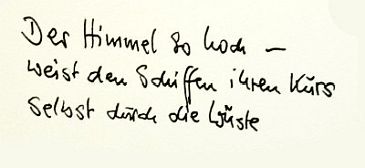 Der Himmel so hoch –
weist den Schiffen ihren Kurs
selbst durch die Wüste